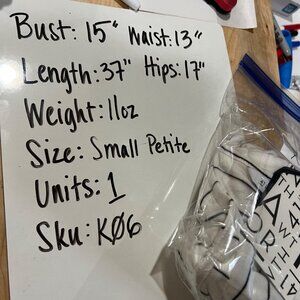 Bust: 15" Waist: 13"
Length: 37" Hips: 17"
Weight: 11oz
Size: Small Petite
Units: 1
Sku: KØ6